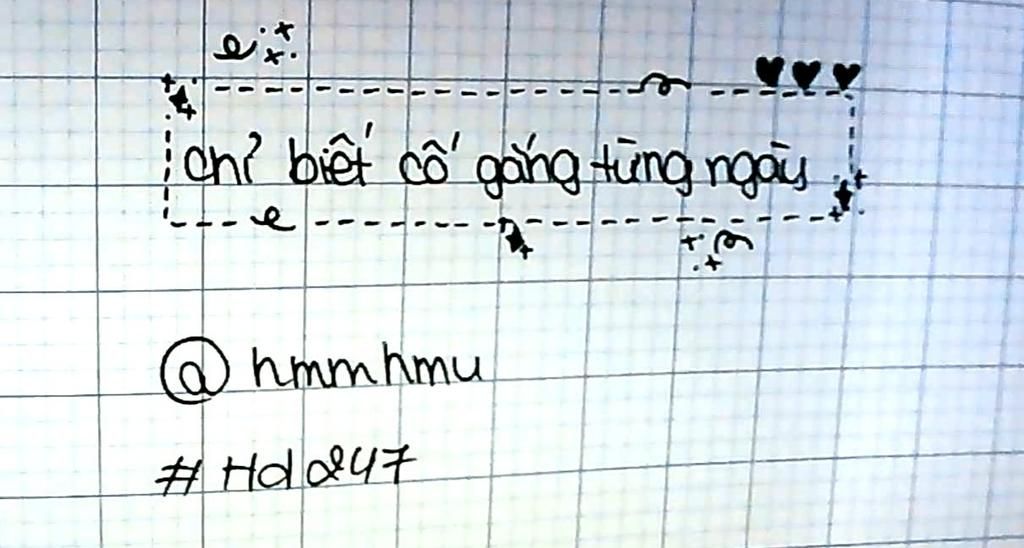 chỉ biết cố gắng từng ngày
@ hmmhmu
# Hd247